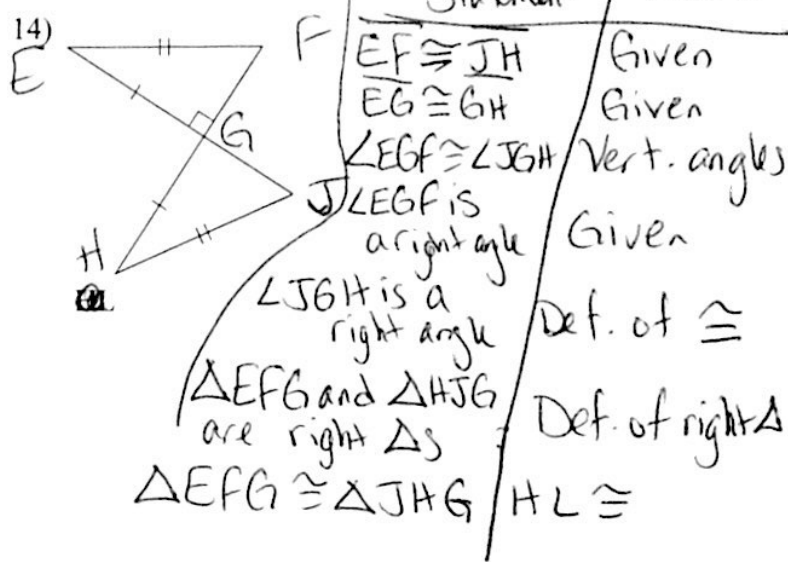 14)
E
F
G
J
H
Statement
EF ≅ JH Given
EG ≅ GH Given
∠EGF ≅ ∠JGH Vert. angles
∠EGF is
a right angle Given
∠JGH is a
right angle Def. of ≅
△EFG and △HJG
are right △s Def. of right △
△EFG ≅ △JHG HL ≅